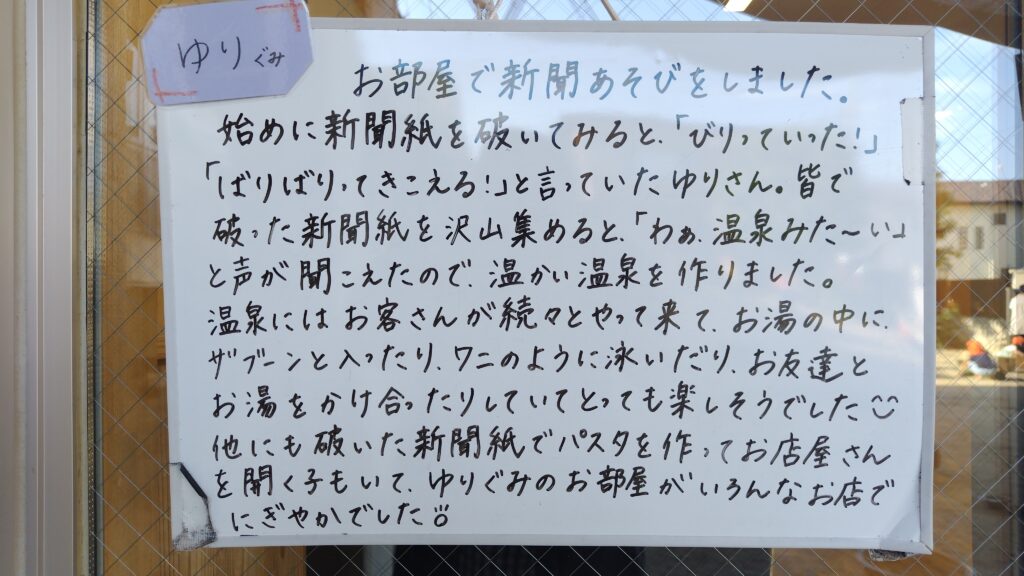 ゆりぐみ
お部屋で新聞あそびをしました。
始めに新聞紙を破いてみると、「びりっていった!」
「ばりばりってきこえる!」と言っていたゆりさん。皆で
破った新聞紙を沢山集めると、「わぁ、温泉みた〜い」
と声が聞こえたので、温かい温泉を作りました。
温泉にはお客さんが続々とやって来て、お湯の中に、
ザブーンと入ったり、ワニのように泳いだり、お友達と
お湯をかけ合ったりしていてとっても楽しそうでした
他にも破いた新聞紙でパスタを作ってお店屋さん
を開く子もいて、ゆりぐみのお部屋がいろんなお店で
にぎやかでした